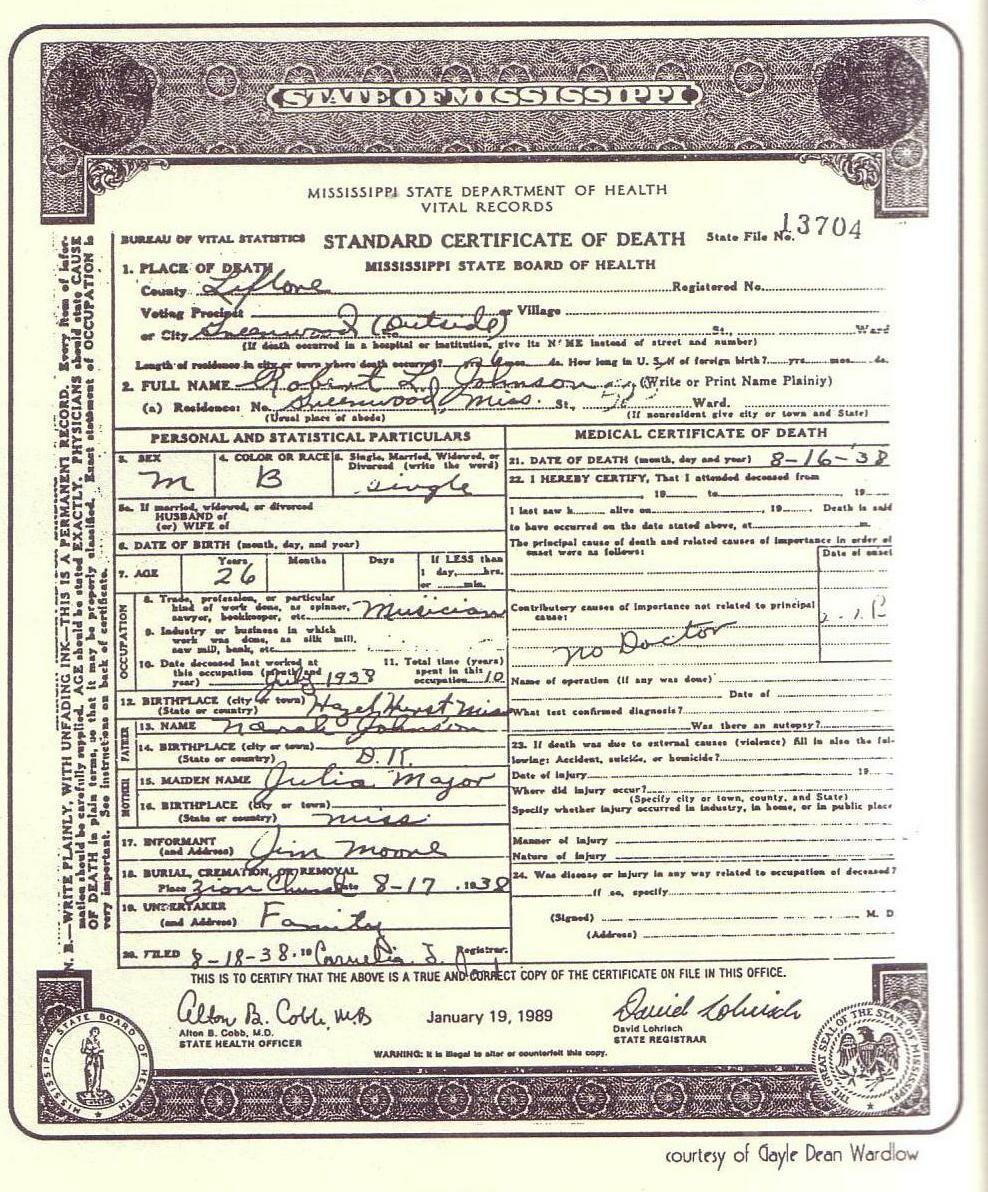 STATE OF MISSISSIPPI
MISSISSIPPI STATE DEPARTMENT OF HEALTH
VITAL RECORDS
BUREAU OF VITAL STATISTICS STANDARD CERTIFICATE OF DEATH State File No. 13704
1. PLACE OF DEATH MISSISSIPPI STATE BOARD OF HEALTH
County Leflore Registered No.
Voting Precinct or Village
or City Greenwood (Outside) St., Ward
(If death occurred in a hospital or institution, give its NAME instead of street and number)
Length of residence in city or town where death occurred? yrs. mos. ds. How long in U. S. if of foreign birth? yrs. mos. ds.
2. FULL NAME Robert L. Johnson (Write or Print Name Plainly)
(a) Residence: No. Greenwood, Miss. St., Ward.
(Usual place of abode) (If nonresident give city or town and State)
PERSONAL AND STATISTICAL PARTICULARS
3. SEX 4. COLOR OR RACE 5. Single, Married, Widowed, or
Divorced (write the word)
M B Single
5a. If married, widowed, or divorced
HUSBAND of
(or) WIFE of
6. DATE OF BIRTH (month, day, and year)
7. AGE Years Months Days If LESS than
26 1 day, hrs.
or min.
OCCUPATION
8. Trade, profession, or particular
kind of work done, as spinner, Musician
sawyer, bookkeeper, etc.
9. Industry or business in which
work was done, as silk mill,
saw mill, bank, etc.
10. Date deceased last worked at 11. Total time (years)
this occupation (month and spent in this
year) July 1938 occupation 10
12. BIRTHPLACE (city or town) Hazel Hurst Miss
(State or country)
FATHER
13. NAME Norah Johnson
14. BIRTHPLACE (city or town)
(State or country) D.K.
MOTHER
15. MAIDEN NAME Julia Major
16. BIRTHPLACE (city or town)
(State or country) Miss.
17. INFORMANT
(and Address) Jim Moore
18. BURIAL, CREMATION, OR REMOVAL
Place Zion Church Date 8-17, 1938
19. UNDERTAKER
(and Address) Family
20. FILED 8-18-38. 19 Cornelia J. Registrar.
MEDICAL CERTIFICATE OF DEATH
21. DATE OF DEATH (month, day and year) 8-16-38
22. I HEREBY CERTIFY, That I attended deceased from
19 to 19
I last saw h alive on , 19 Death is said
to have occurred on the date stated above, at m.
The principal cause of death and related causes of importance in order of
onset were as follows: Date of onset
Contributory causes of importance not related to principal
cause:
No Doctor
Name of operation (if any was done)
Date of
What test confirmed diagnosis?
Was there an autopsy?
23. If death was due to external causes (violence) fill in also the fol-
lowing: Accident, suicide, or homicide?
Date of injury 19
Where did injury occur?
(Specify city or town, county, and State)
Specify whether injury occurred in industry, in home, or in public place
Manner of injury
Nature of injury
24. Was disease or injury in any way related to occupation of deceased?
If so, specify
(Signed) M. D
(Address)
N. B.—WRITE PLAINLY, WITH UNFADING INK—THIS IS A PERMANENT RECORD. Every item of infor-
mation should be carefully supplied. AGE should be stated EXACTLY. PHYSICIANS should state CAUSE
OF DEATH in plain terms, so that it may be properly classified. Exact statement of OCCUPATION is
very important. See instructions on back of certificate.
THIS IS TO CERTIFY THAT THE ABOVE IS A TRUE AND CORRECT COPY OF THE CERTIFICATE ON FILE IN THIS OFFICE.
Alton B. Cobb, M.D. January 19, 1989 David Lohrisch
Alton B. Cobb, M.D. David Lohrisch
STATE HEALTH OFFICER STATE REGISTRAR
WARNING: It is illegal to alter or counterfeit this copy.
MISSISSIPPI STATE BOARD OF HEALTH
THE GREAT SEAL OF THE STATE OF MISSISSIPPI
courtesy of Gayle Dean Wardlow